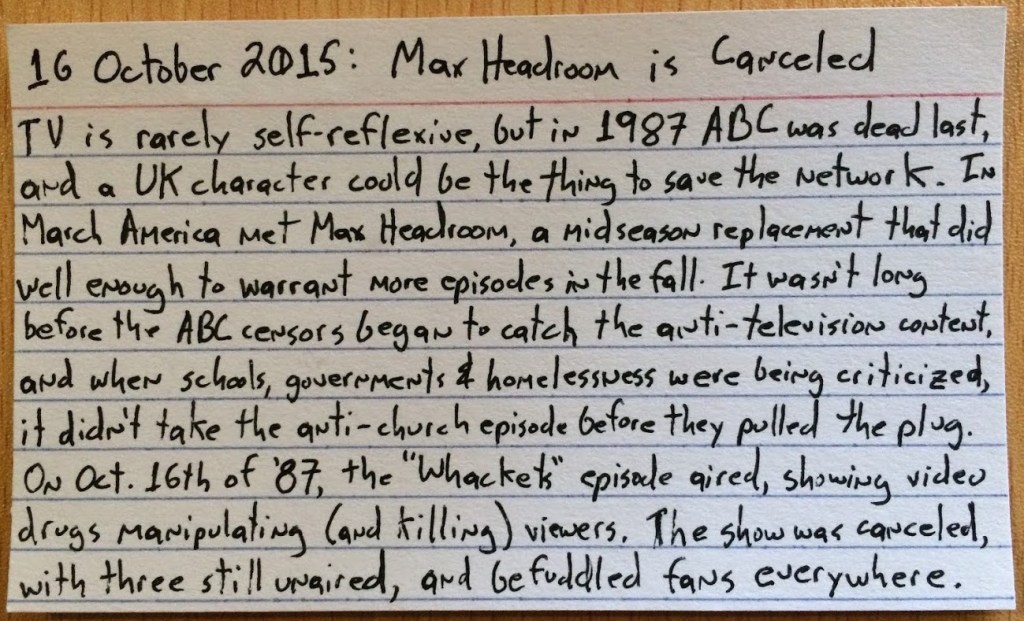 16 October 2015: Max Headroom is Canceled
TV is rarely self-reflexive, but in 1987 ABC was dead last,
and a UK character could be the thing to save the network. In
March America met Max Headroom, a midseason replacement that did
well enough to warrant more episodes in the fall. It wasn't long
before the ABC censors began to catch the anti-television content,
and when schools, governments & homelessness were being criticized,
it didn't take the anti-church episode before they pulled the plug.
On Oct. 16th of '87, the "Whackets" episode aired, showing video
drugs manipulating (and killing) viewers. The show was canceled,
with three still unaired, and befuddled fans everywhere.